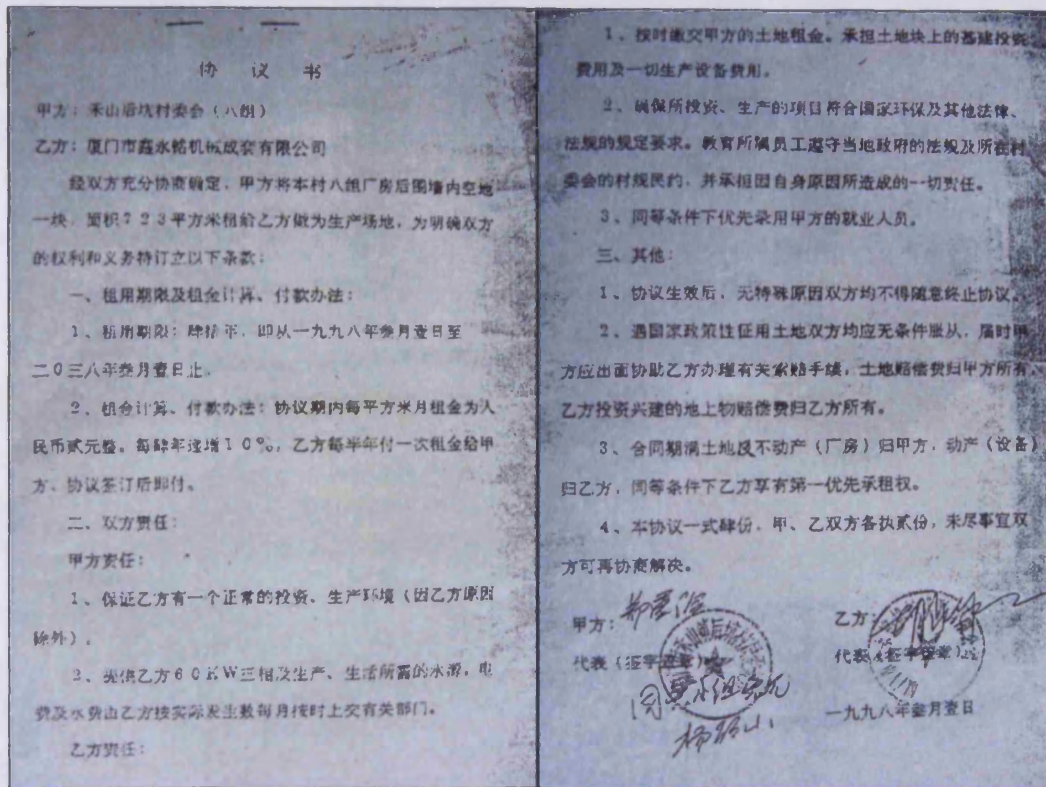 协 议 书
甲方：禾山后坑村委会（八组）
乙方：厦门市鑫永铭机械成套有限公司
经双方充分协商确定，甲方将本村八组厂房后围墙内空地
一块，面积７２３平方米租给乙方做为生产场地，为明确双方
的权利和义务特订立以下条款：
一、租用期限及租金计算、付款办法：
1、租用期限：肆拾年，即从一九九八年叁月壹日至
二０三八年叁月壹日止。
2、租金计算、付款办法：协议期内每平方米月租金为人
民币贰元整。每肆年递增１０％，乙方每半年付一次租金给甲
方，协议签订后即付。
二、双方责任：
甲方责任：
1、保证乙方有一个正常的投资、生产环境（因乙方原因
除外）。
2、提供乙方６０ＫＷ三相及生产、生活所需的水源，电
费及水费由乙方按实际发生数每月按时上交有关部门。
乙方责任：
1、按时缴交甲方的土地租金。承担土地块上的基建投资
费用及一切生产设备费用。
2、确保所投资、生产的项目符合国家环保及其他法律、
法规的规定要求。教育所属员工遵守当地政府的法规及所在村
委会的村规民约，并承担因自身原因所造成的一切责任。
3、同等条件下优先录用甲方的就业人员。
三、其他：
1、协议生效后，无特殊原因双方均不得随意终止协议。
2、遇国家政策性征用土地双方均应无条件服从，届时甲
方应出面协助乙方办理有关索赔手续，土地赔偿费归甲方所有，
乙方投资兴建的地上物赔偿费归乙方所有。
3、合同期满土地及不动产（厂房）归甲方，动产（设备）
归乙方，同等条件下乙方享有第一优先承租权。
4、本协议一式肆份，甲、乙双方各执贰份，未尽事宜双
方可再协商解决。
甲方：
乙方：
代表（签字盖章）
代表（签字盖章）
同意
一九九八年叁月壹日